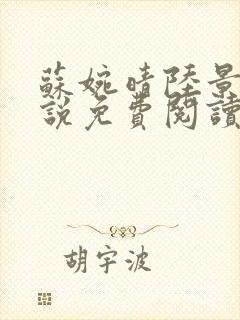 蘇婉晴陸景
說免費閱讀
胡宇波